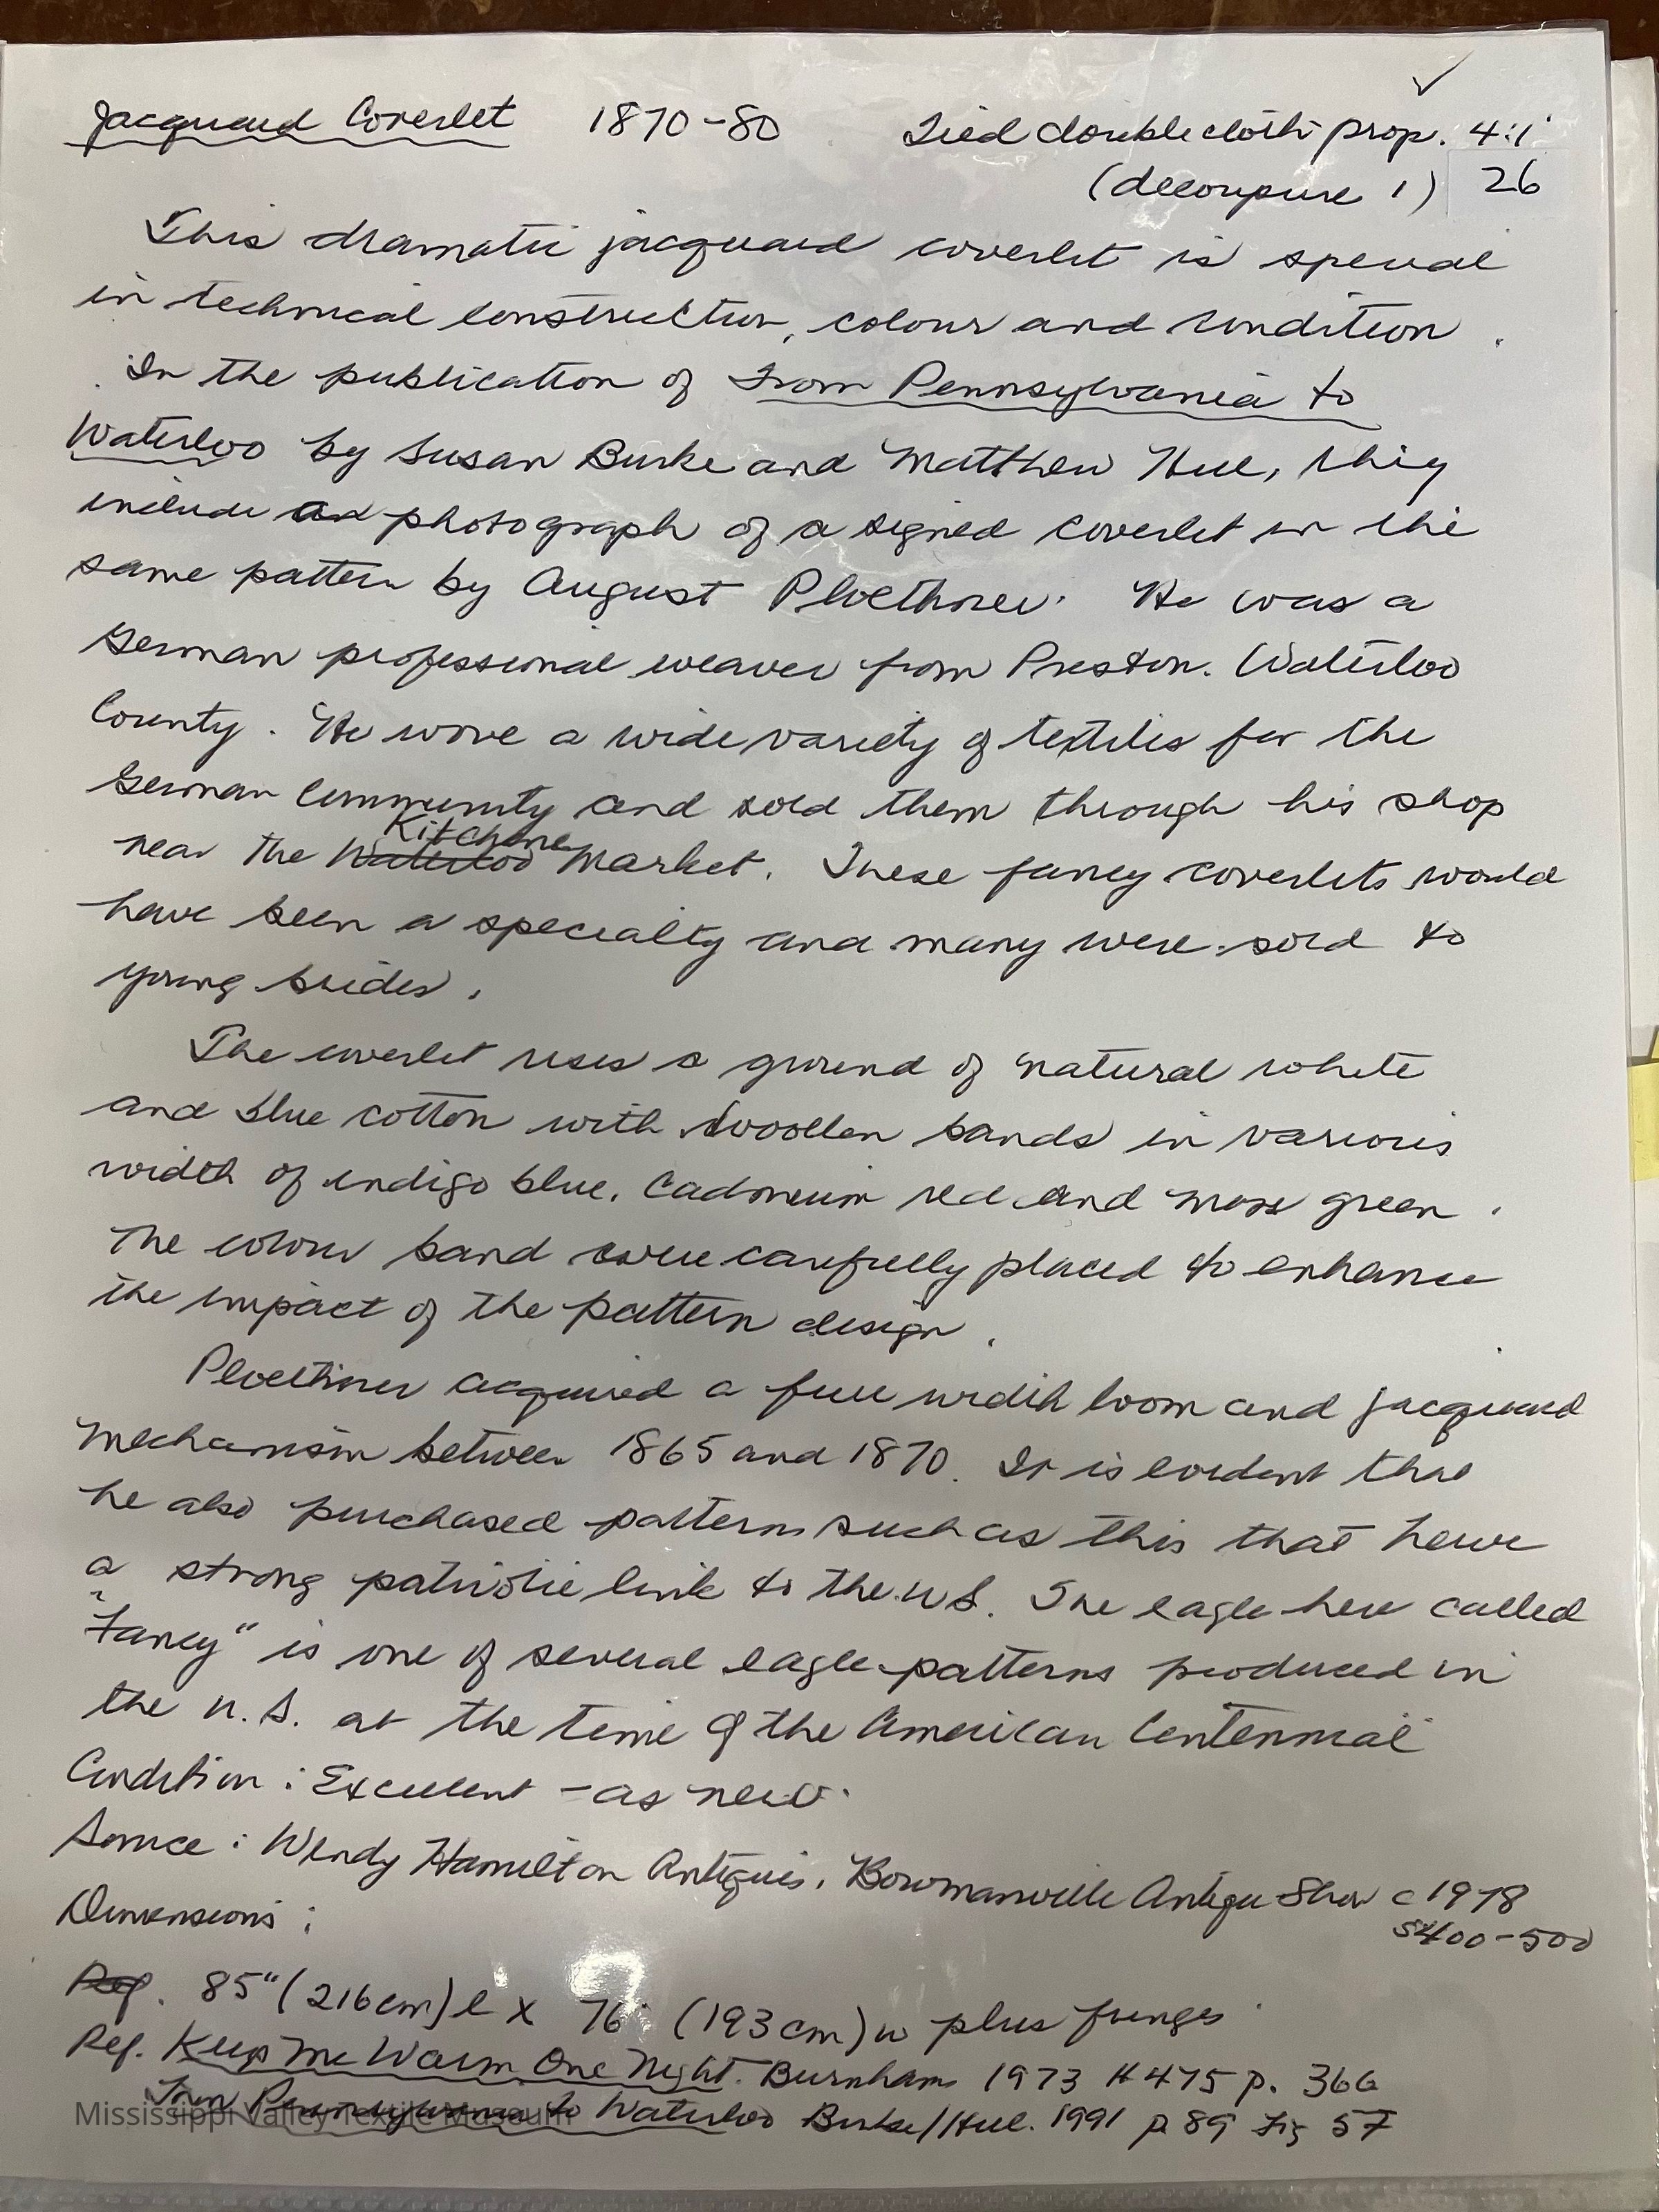 ✓
Jacquard Coverlet 1870-80 Tied doublecloth prop. 4:1
(decoupure 1) 26
This dramatic jacquard coverlet is special
in technical construction, colour and condition.
In the publication of From Pennsylvania to
Waterloo by Susan Burke and Matthew Hill, they
include a photograph of a signed coverlet in the
same pattern by August Ploethner. He was a
German professional weaver from Preston. Waterloo
County. He wove a wide variety of textiles for the
German Community and sold them through his shop
near the Waterloo Kitchener Market. These fancy coverlets would
have been a specialty and many were sold to
young brides.
The coverlet uses a ground of natural white
and blue cotton with woollen bands in various
width of indigo blue, Cadmeium red and moss green.
The colour band were carefully placed to enhance
the impact of the pattern design.
Ploethner acquired a full width loom and jacquard
mechanism between 1865 and 1870. It is evident that
he also purchased patterns such as this that have
a strong patriotic link to the U.S. The eagle here called
"Fancy" is one of several eagle patterns produced in
the U.S. at the time of the American Centennial
Condition: Excellent - as new.
Source: Wendy Hamilton Antiques, Bowmanville Antique Show c 1978
$400-500
Dimensions:
Ref. 85" (216cm) l x 76" (193cm) w plus fringes
Ref. Keep Me Warm One Night. Burnham 1973 #475 p. 366
From Pennsylvania to Waterloo Burke/Hill. 1991 p 89 Fig 57
Mississippi Valley Textile Museum